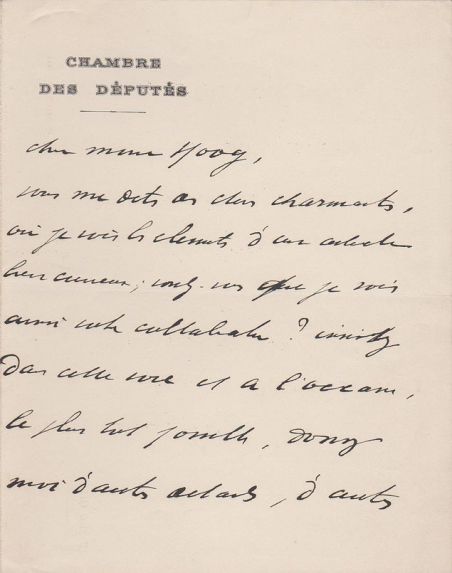 CHAMBRE
DES DÉPUTÉS
cher Hoog,
vous me dites des charmants,
où je vois les éléments d'un article
bien curieux; voulez-vous que je sois
ainsi votre collaborateur? insistez
Dans cette voie et à l'occasion,
le plus tôt possible, donnez
moi d'autres détails, d'autres